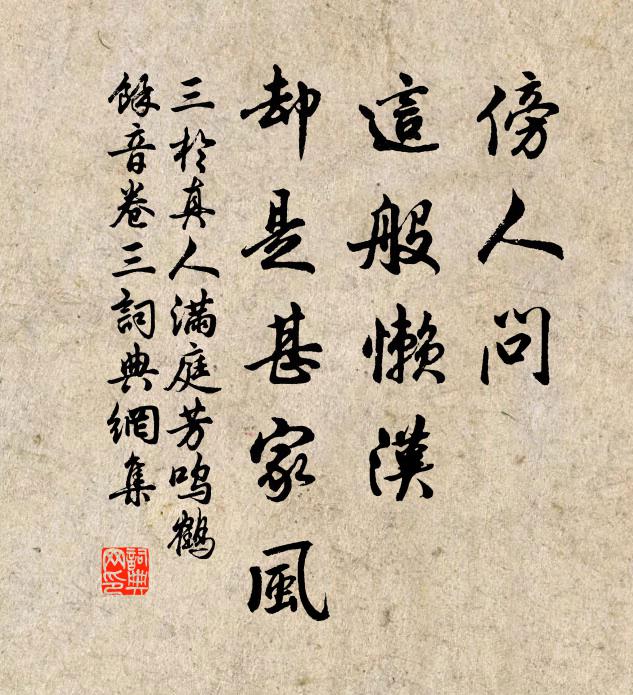 傍人問
這般懶漢
却是甚家風
三於真人滿庭芳鳴鶴
餘音卷三詞典網集
詞典网印